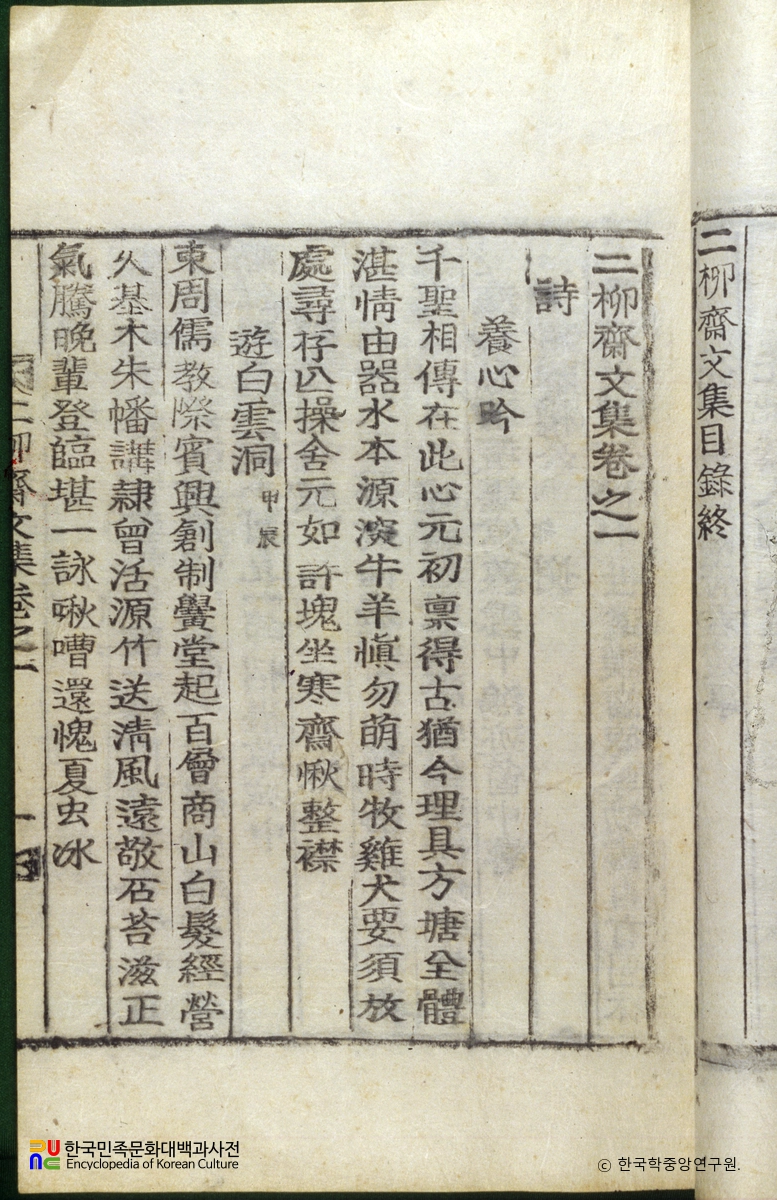 二柳齋文集目錄終
二柳齋文集卷之一
詩
養心吟
千聖相傳在此心元初禀得古猶今理具方塘全體
湛情由器水本源深牛羊愼勿萌時牧雞犬要須放
處尋存亾操舍元如許塊坐寒齋愀整襟
遊白雲洞甲辰
東周儒敎際賓興創制黌堂起百層商山白髮經營
久基木朱幡講隷曾活源竹送淸風遠敬石苔滋正
氣騰晩輩登臨堪一詠啾嘈還愧夏虫冰
二柳齋文集卷之一
一
한국민족문화대백과사전
Encyclopedia of Korean Culture
ⓒ 한국학중앙연구원.